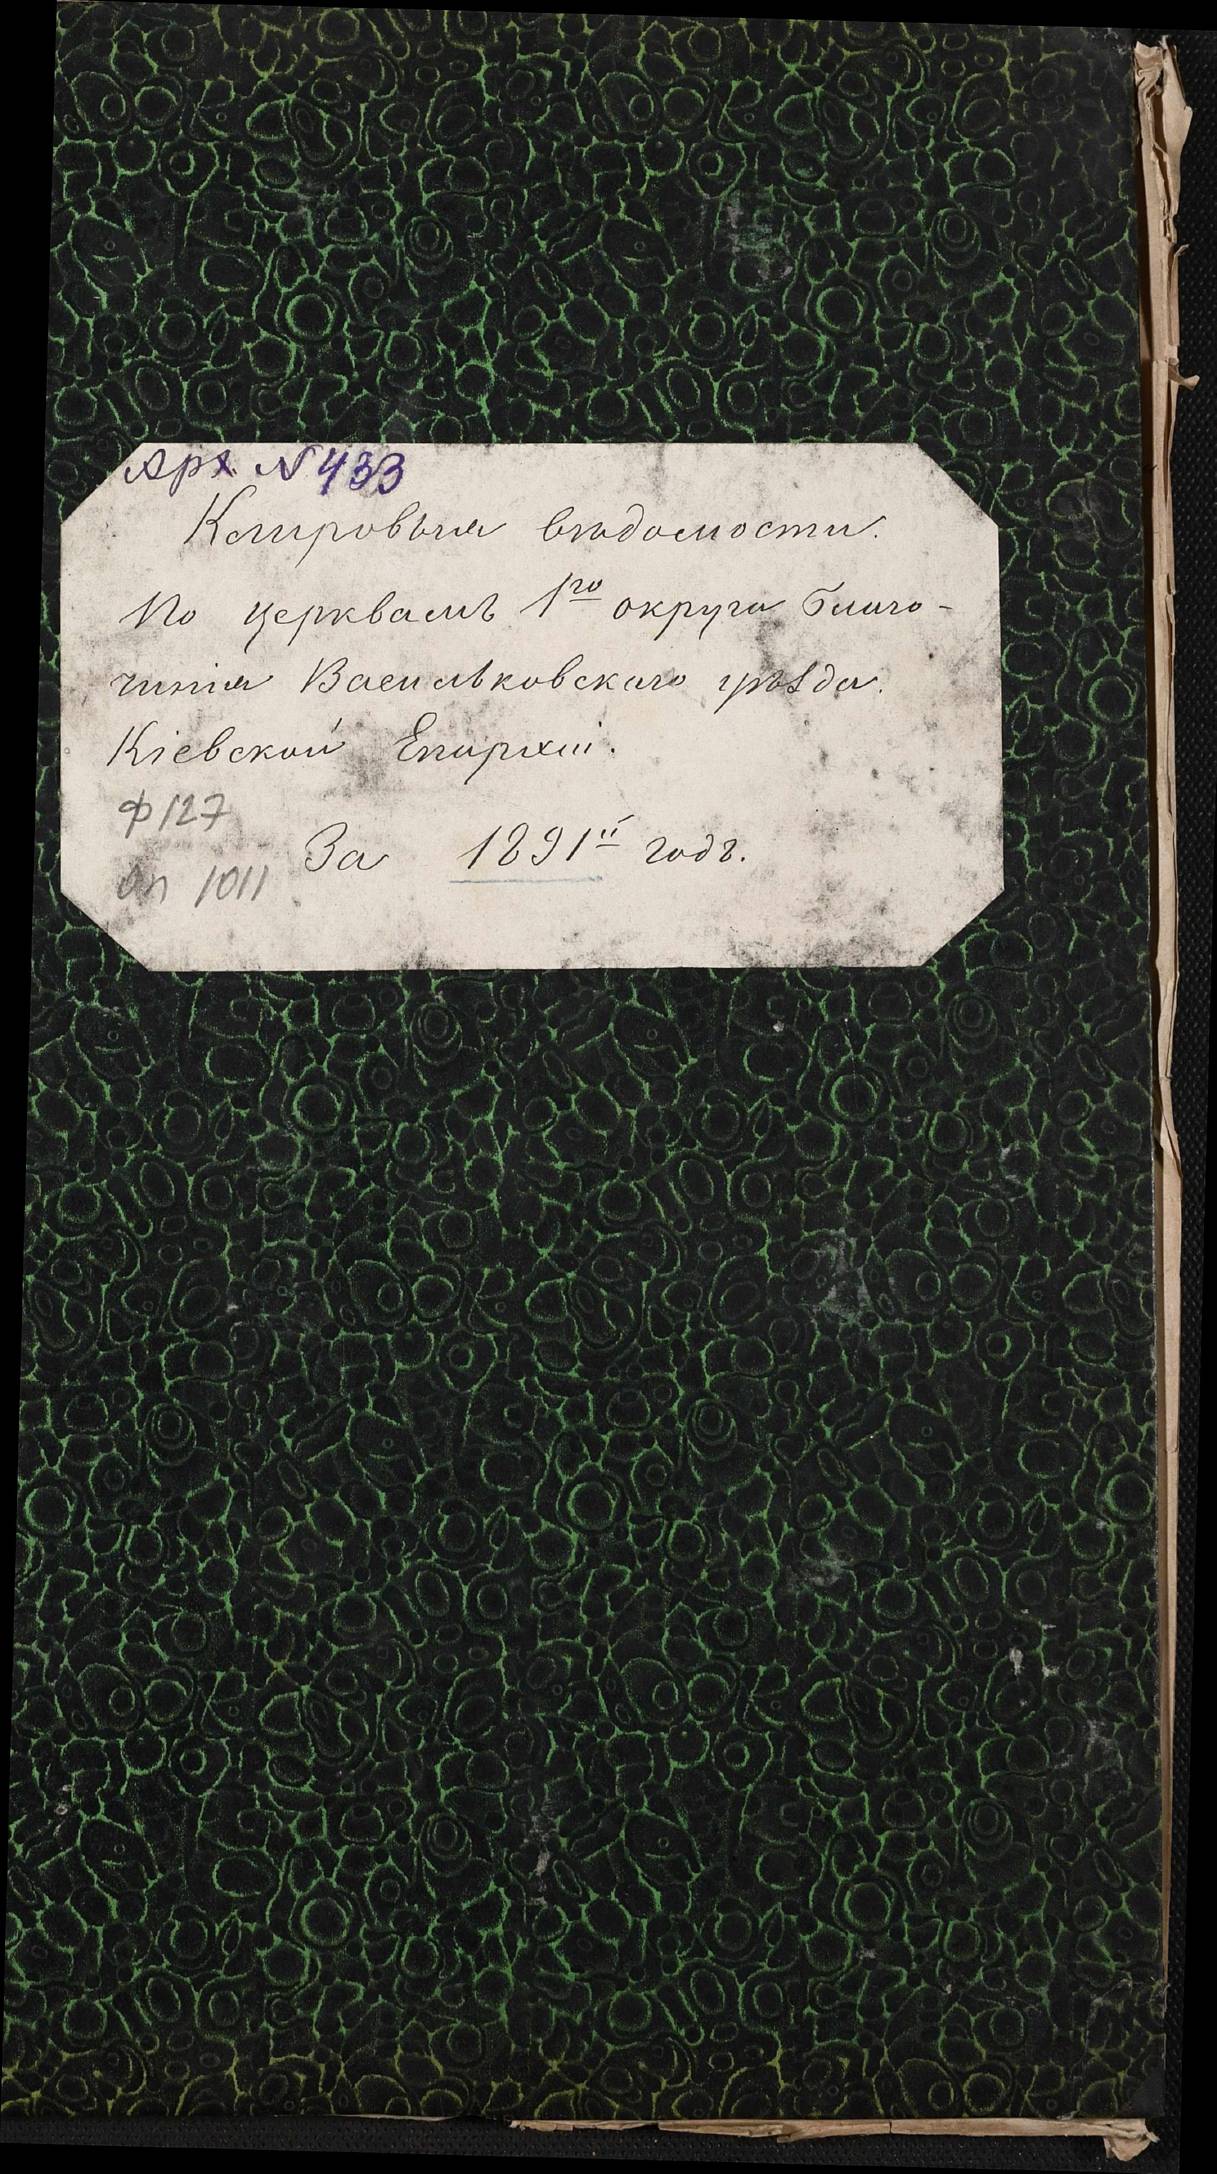 Арх. № 433
Клировыя вѣдомости.
По церквамъ 1го округа благо-
чинія Васильковскаго уѣзда.
Кіевской Епархіи.
Ф 127
За 1891й годъ.
оп 1011